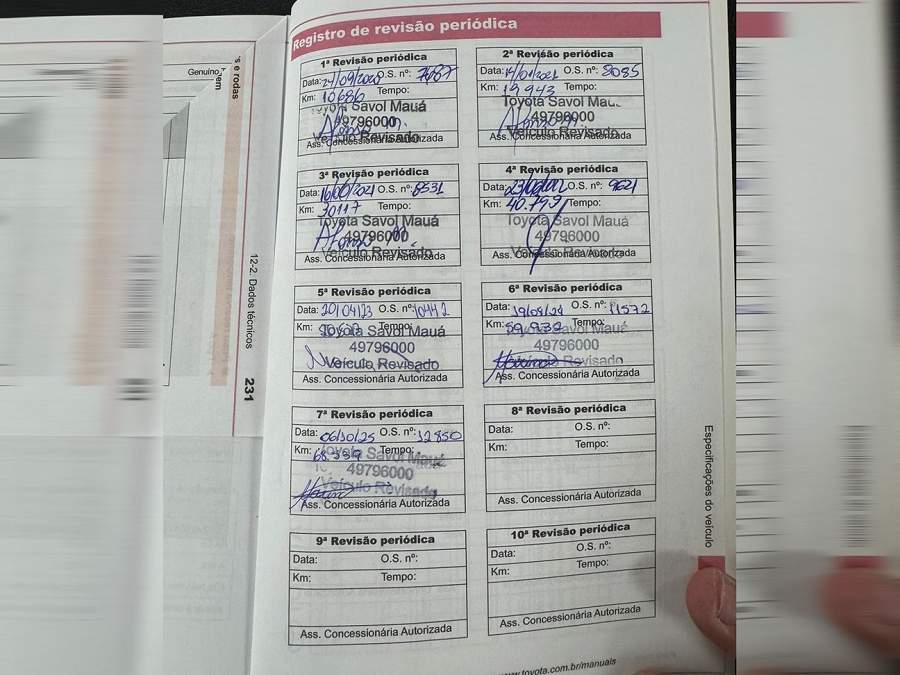 Registro de revisão periódica
1ª Revisão periódica
Data: 24/09/2020 O.S. nº: 7687
Km: 10686 Tempo:
Toyota Savol Mauá
49796000
Veículo Revisado
Ass. Concessionária Autorizada
2ª Revisão periódica
Data: 14/01/2021 O.S. nº: 8085
Km: 19943 Tempo:
Toyota Savol Mauá
49796000
Veículo Revisado
Ass. Concessionária Autorizada
3ª Revisão periódica
Data: O.S. nº: 8531
Km: 30117 Tempo:
Toyota Savol Mauá
49796000
Veículo Revisado
Ass. Concessionária Autorizada
4ª Revisão periódica
Data: O.S. nº: 9621
Km: 40.799 Tempo:
Toyota Savol Mauá
49796000
Veículo Revisado
Ass. Concessionária Autorizada
5ª Revisão periódica
Data: 20/04/23 O.S. nº: 10442
Km: Tempo:
Toyota Savol Mauá
49796000
Veículo Revisado
Ass. Concessionária Autorizada
6ª Revisão periódica
Data: O.S. nº: 11572
Km: 59.932 Tempo:
Toyota Savol Mauá
49796000
Veículo Revisado
Ass. Concessionária Autorizada
7ª Revisão periódica
Data: 06/10/25 O.S. nº: 12850
Km: 68.339 Tempo:
Toyota Savol Mauá
49796000
Veículo Revisado
Ass. Concessionária Autorizada
8ª Revisão periódica
Data: O.S. nº:
Km: Tempo:
Ass. Concessionária Autorizada
9ª Revisão periódica
Data: O.S. nº:
Km: Tempo:
Ass. Concessionária Autorizada
10ª Revisão periódica
Data: O.S. nº:
Km: Tempo:
Ass. Concessionária Autorizada
www.toyota.com.br/manuais
Especificações do veículo
s e rodas
Genuíno
em
12-2. Dados técnicos
231